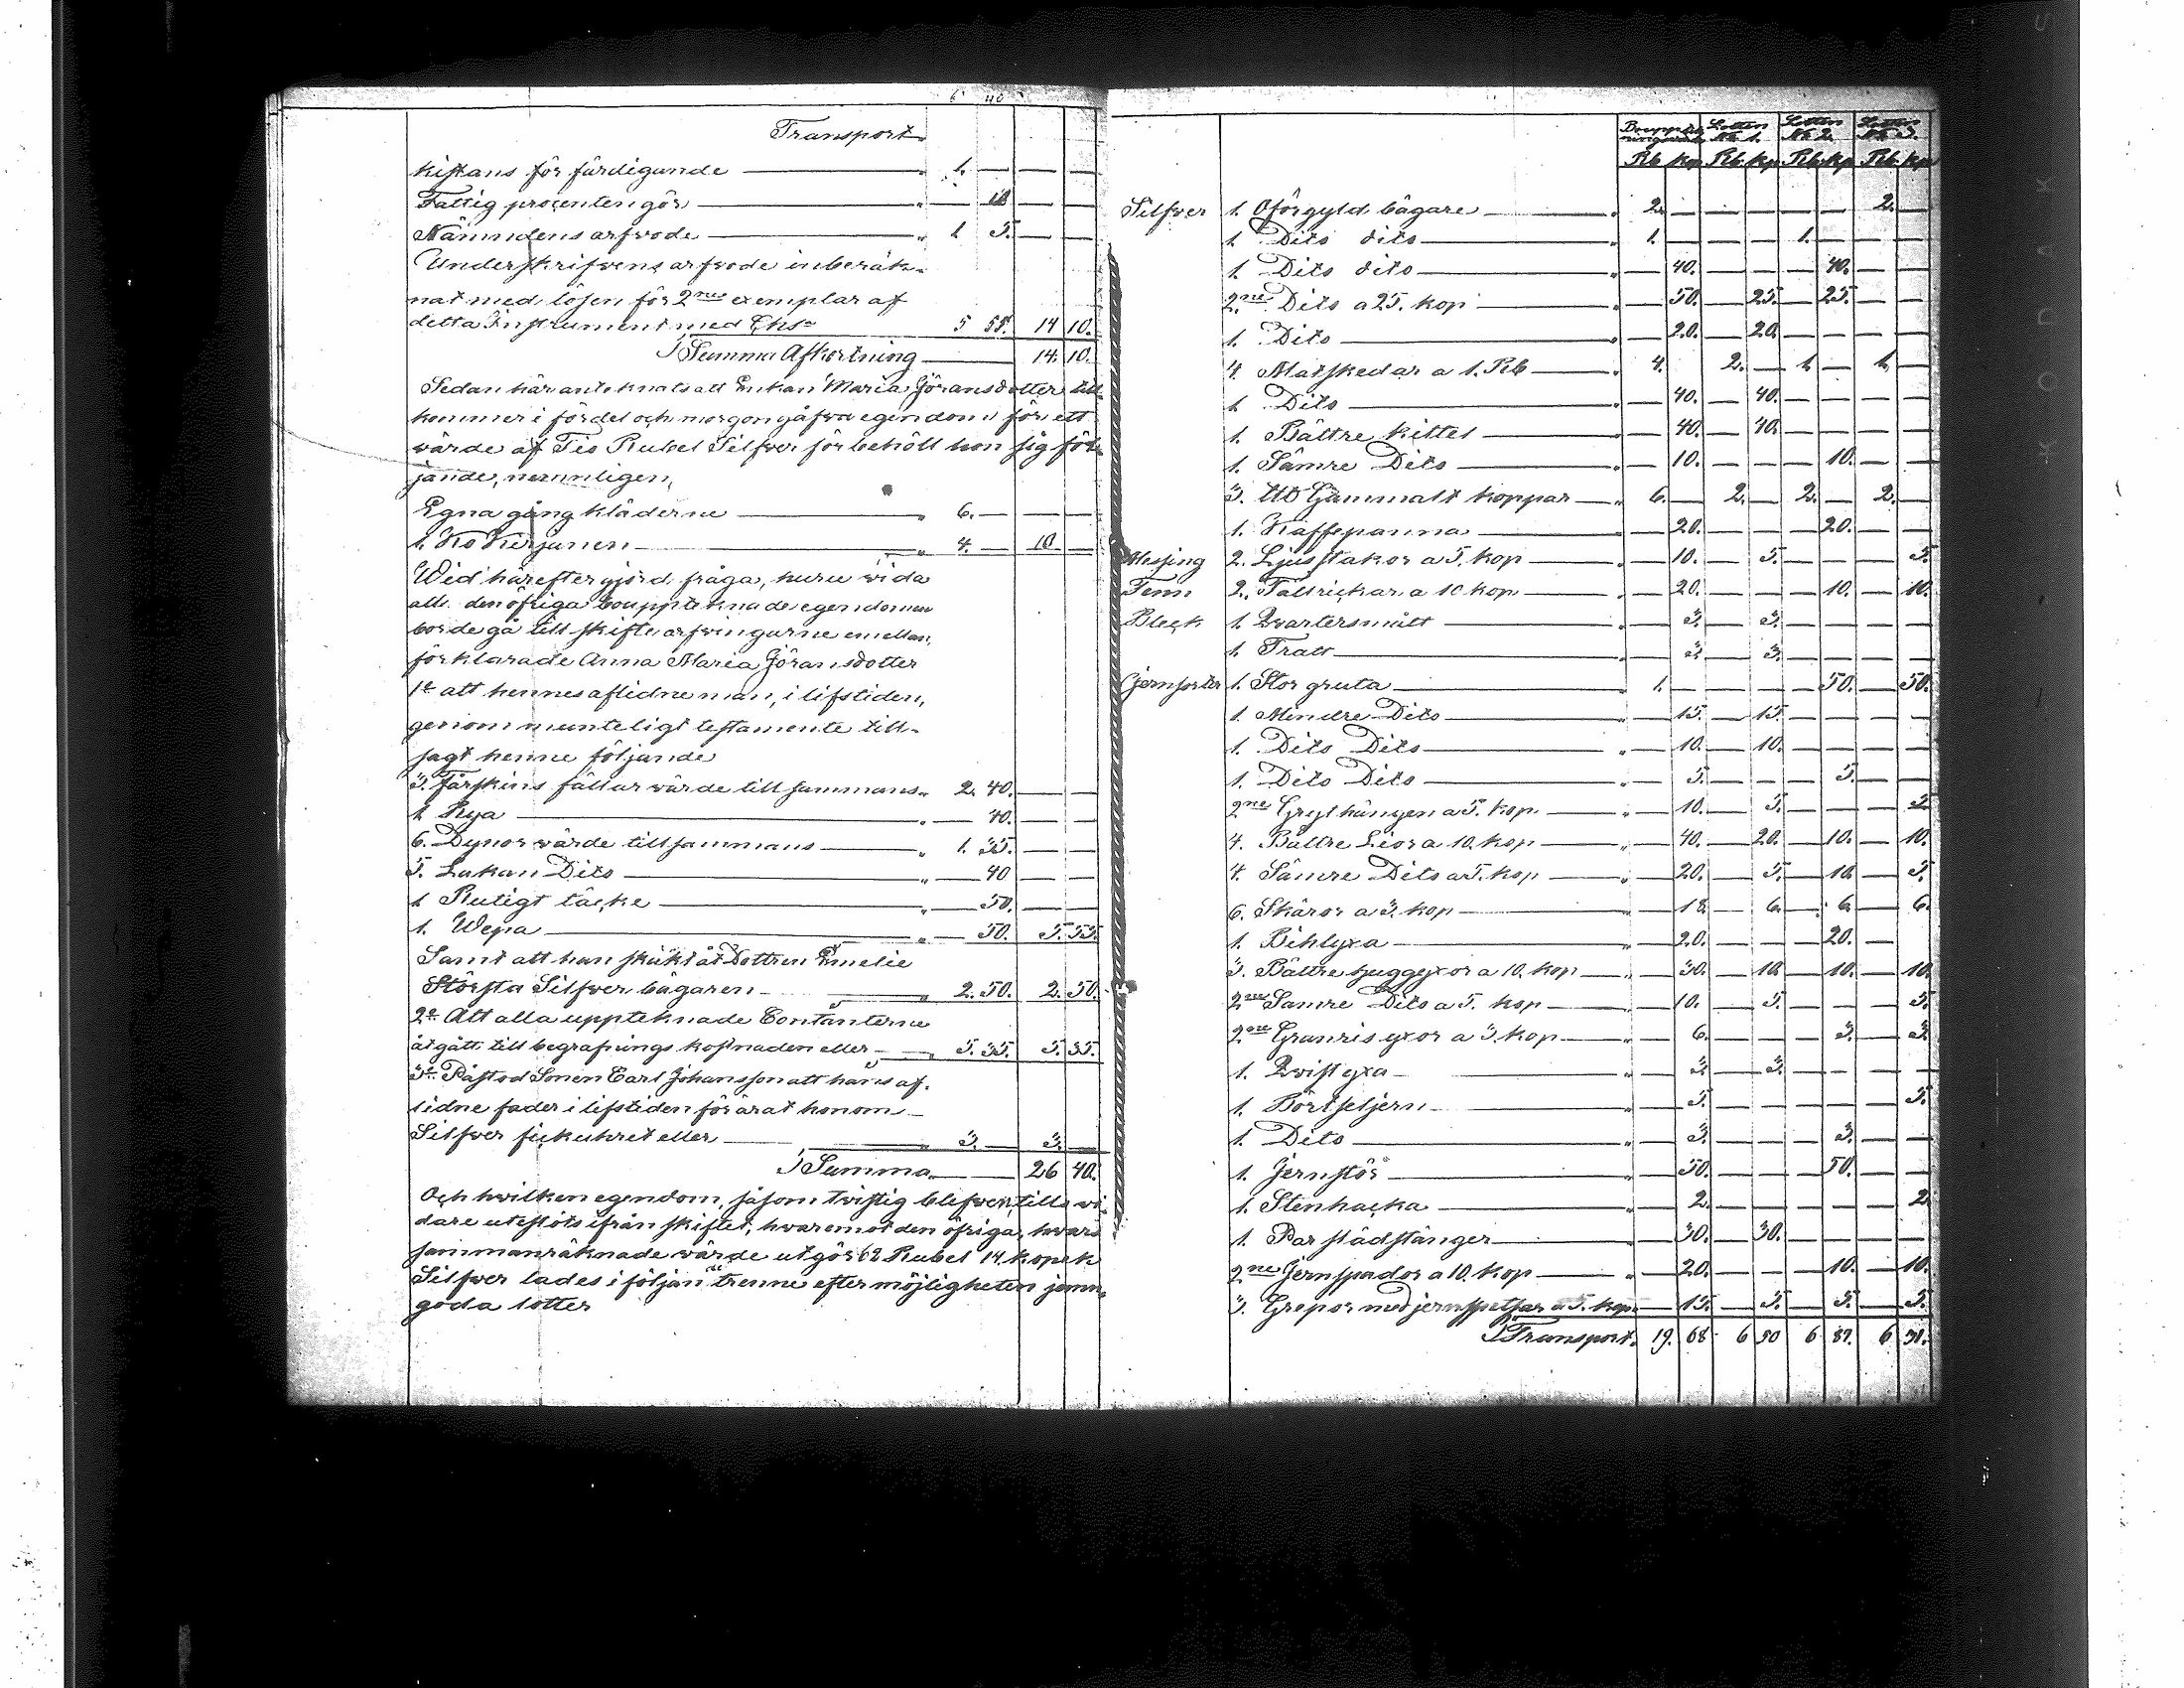 6 40
Transport
kistans för färdigande — 1. — — —
Fattig procenten gör — — 10 — —
Nämndens arfvode — 1. 5. — —
Underskrifvens arfvode inberäk-
nat med lösen för 2ne exemplar af
detta Instrument med Chs 5 55. 14 10.
Summa Afkortning — 14. 10.
Sedan här antecknats att Enkan Maria Jöransdotter till-
kommer i fördel och morgongåfva egendom för ett
wärde af Tio Rubel Silfver förbehöll hon sig föl-
jande, nemnligen,
Egna gång kläderne — 6. — — —
1. Ko Kirjunen — 4. — 10 —
Wid härefter gjord fråga, huru vida
all den öfriga bouppteknade egendomen
borde gå till skifte arfvingarne emellan,
förklarade Anna Maria Jöransdotter
1o att hennes aflidne man, i lifstiden,
genom munteligt testamente till-
sagt henne följande
3. Fårskins fällar wärde till sammans 2. 40. — —
1 Rya — — 40. — —
6. Dynor wärde tillsammans — 1. 35. — —
5. Lakan Dito — — 40 — —
1 Rutigt täcke — — 50. — —
1. Wepa — — 50. 5. 55.
Samt att han skänkt åt Dottren Emelie
Största Silfver bägaren — 2. 50. 2. 50.
2o Att alla uppteknade Contanterne
åtgått till begrafnings kostnaden eller — 5. 35. 5. 35.
3o Påstod Sonen Carl Johansson att hans af-
lidne fader i lifstiden förärat honom
Silfver fickuhret eller — 3. — 3. —
Summa — 26 40.
Och hwilken egendom, såsom twistig blefven, tills wi-
dare uteslöts ifrån skiftet, hwaremot den öfriga, hwars
sammanräknade wärde utgör 62 Rubel 14 kopek
Silfver lades i följande trenne efter möjligheten jemn-
goda lotter
Bouppteckningsvärde Lotten No 1. Lotten No 2. Lotten No 3.
Rb kop Rb. kop Rb. kp Rb. kop
Silfver 1. Oförgyld bägare — 2. — — — — — 2. —
1. Dito dito — 1. — — — 1. — — —
1. Dito dito — — 40. — — — 40. — —
2ne Dito a 25. kop — — 50. — 25. — 25. — —
1. Dito — — 20. — 20. — — — —
4. Matskedar a 1. Rb — 4. 2. — 1. — 1. —
1. Dito — — 40. — 40. — — — —
1. Bättre kittel — — 40. — 40. — — — —
1. Sämre Dito — — 10. — — — 10. — —
3. Gammalt koppar — 6. — 2. — 2. — 2. —
1. Kaffepanna — — 20. — — — 20. — —
Messing 2. Ljusstakor a 5. kop — — 10. — 5. — — — 5.
Tenn 2. Tallrickar a 10 kop — — 20. — — — 10. — 10.
Bleck 1. Qvartersmått — — 3. — 3. — — — —
1. Tratt — — 3. — 3. — — — —
Gjernsorter 1. Stor gruta — 1. — — — — 50. — 50.
1. Mindre Dito — — 15. — 15. — — — —
1. Dito Dito — — 10. — 10. — — — —
1. Dito Dito — — 5. — — — 5. — —
2ne Grythängen a 5. kop — — 10. — 5. — — — 5.
4. Bättre Lior a 10. kop — — 40. — 20. — 10. — 10.
4. Sämre Dito a 5. kop — — 20. — 5. — 10. — 5.
6. Skäror a 3. kop — — 18. — 6. — 6. — 6.
1. Bihlyxa — — 20. — — — 20. —
3. Bättre huggyxor a 10. kop — — 30. — 10. — 10. — 10.
2ne Sämre Dito a 5. kop — — 10. — 5. — — — 5.
2ne Granris yxor a 3. kop — — 6. — — — 3. — 3.
1. Qvist yxa — — 3. — 3. — — — —
1. Börtseljern — — 5. — — — — — 5.
1. Dito — — 3. — — — 3. — —
1. Jernstör — — 50. — — — 50. — —
1. Stenhacka — — 2. — — — — — 2.
1. Par städstänger — — 30. — 30. — — — —
2ne Jernspador a 10. kop — — 20. — — — 10. — 10.
3. Grepor med jernspetsar a 5. kop — 15. — 5. — 5. — 5.
Transport. 19. 68. 6 50 6 87.
KODAK S